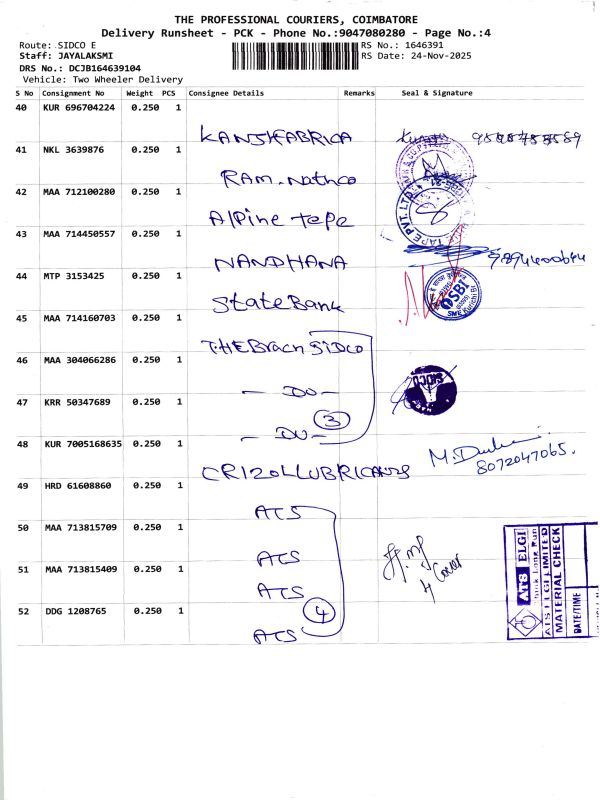 THE PROFESSIONAL COURIERS, COIMBATORE
Delivery Runsheet - PCK - Phone No.:9047080280 - Page No.:4
Route: SIDCO E RS No.: 1646391
Staff: JAYALAKSMI RS Date: 24-Nov-2025
DRS No.: DCJB164639104
Vehicle: Two Wheeler Delivery
S No Consignment No Weight PCS Consignee Details Remarks Seal & Signature
40 KUR 696704224 0.250 1
KANSKFABRICA
41 NKL 3639876 0.250 1
RAM.Nathco
42 MAA 712100280 0.250 1
Alpine tape
TAPE PVT. LTD.
43 MAA 714450557 0.250 1
NANDHANA 9894400644
44 MTP 3153425 0.250 1
State Bank
SBI
SME Kurichi Br
45 MAA 714160703 0.250 1
T.HEBrach SIDCO
46 MAA 304066286 0.250 1
- DO -
SIDCO
47 KRR 50347689 0.250 1
- DO - 3
48 KUR 7005168635 0.250 1
CRIZOLLUBRICANTS 8072047065.
49 HRD 61608860 0.250 1
ATS
50 MAA 713815709 0.250 1
ATS
51 MAA 713815409 0.250 1
ATS
52 DDG 1208765 0.250 1
ATS 4
4 Cover
ATS ELGI
ATS ELGI LIMITED
MATERIAL CHECK
DATE/TIME